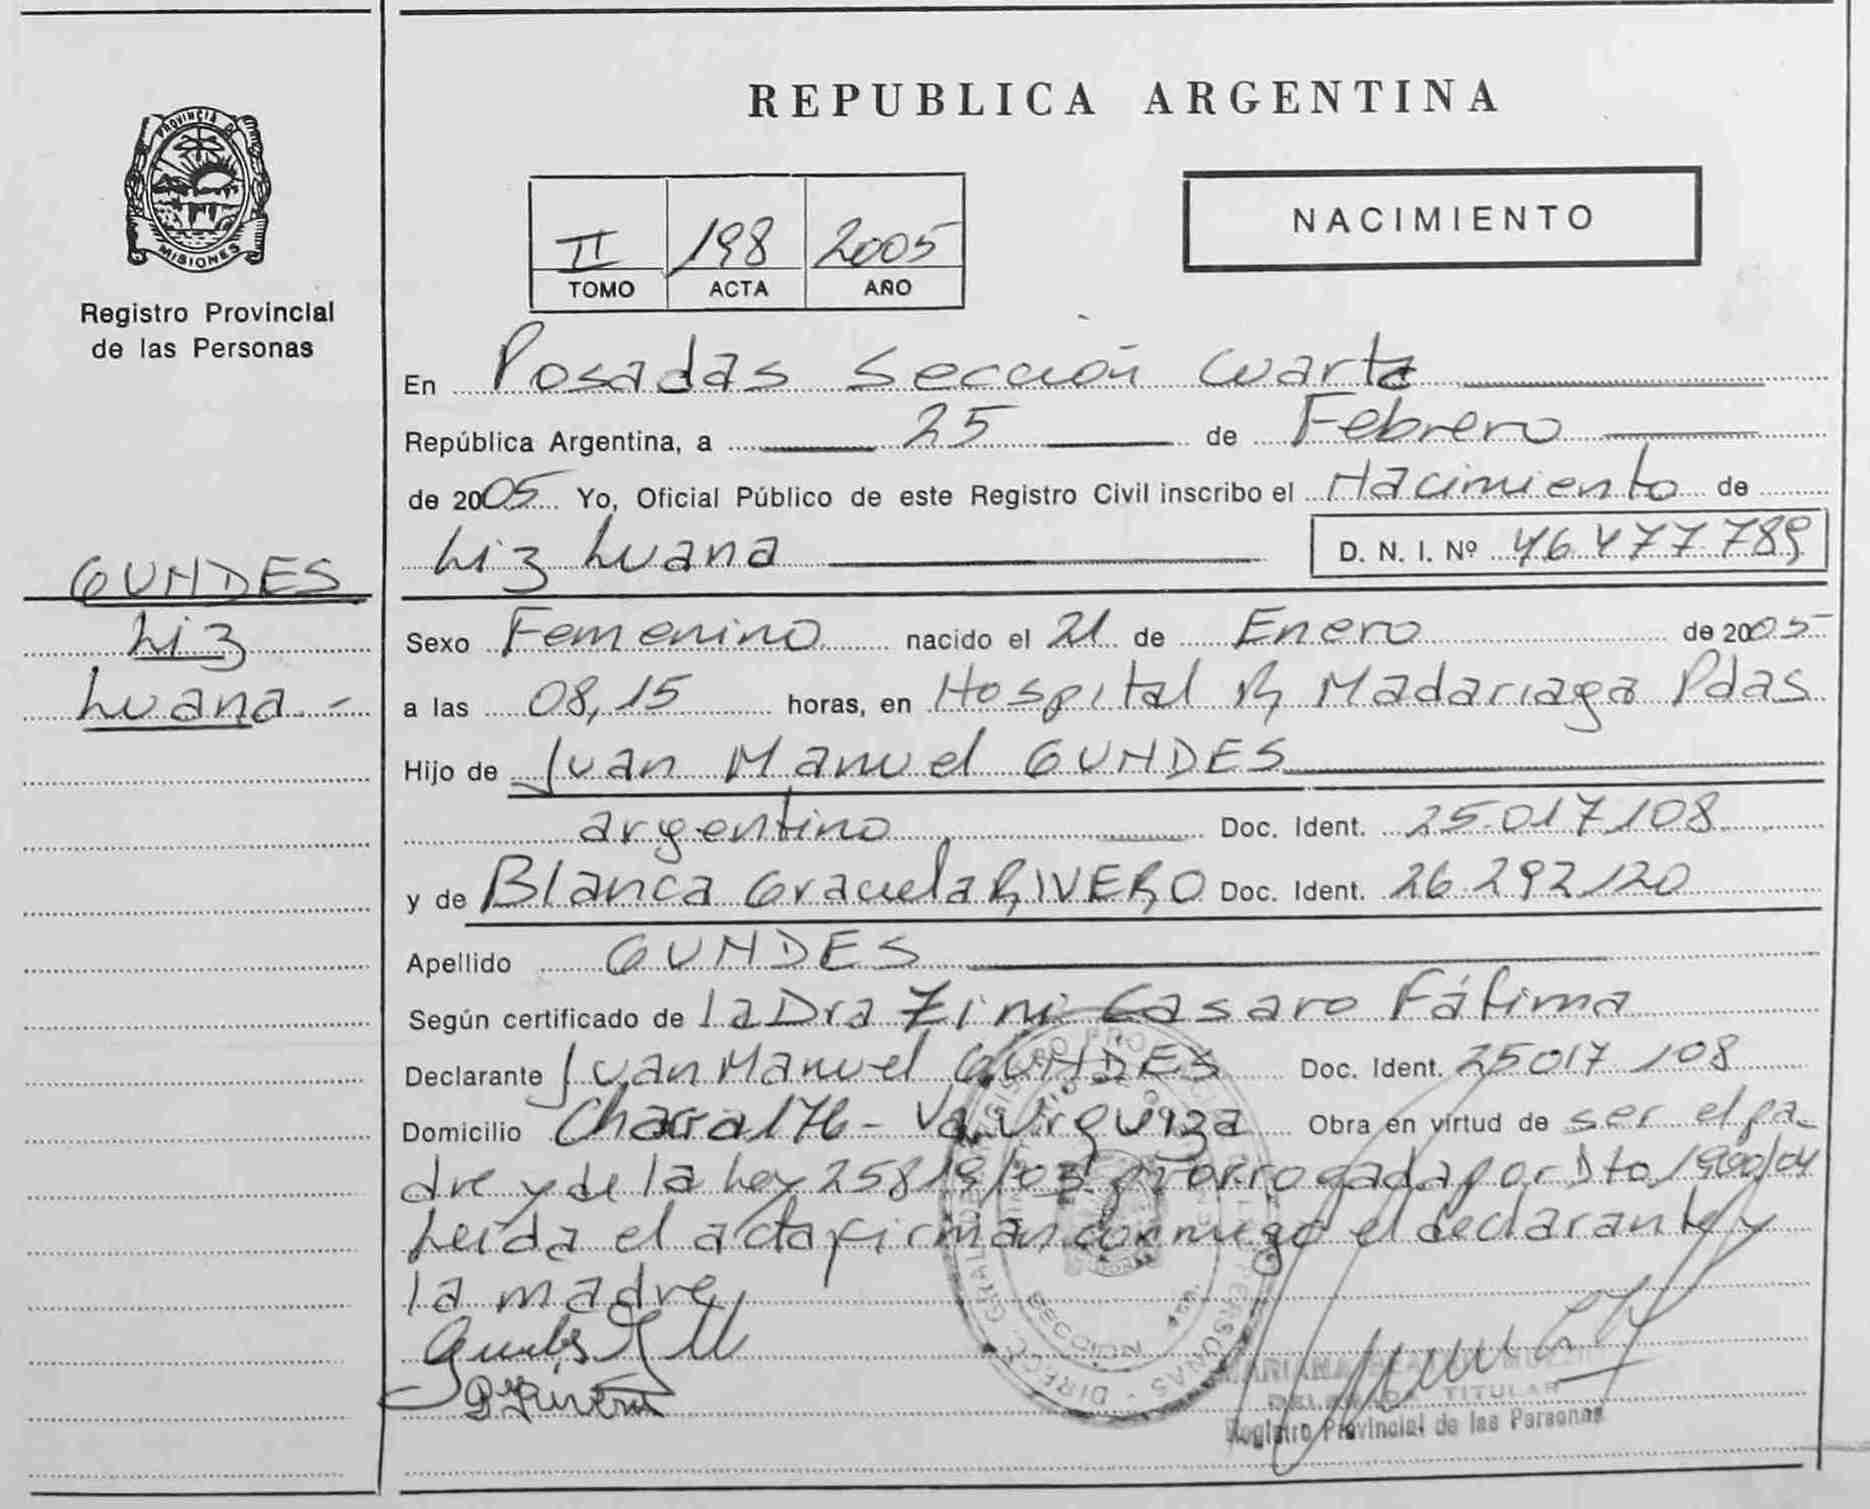 PROVINCIA DE
MISIONES
Registro Provincial
de las Personas
GUNDES
Liz
Luana -
REPUBLICA ARGENTINA
II 198 2005
TOMO ACTA AÑO
NACIMIENTO
En Posadas Sección Cuarta
República Argentina, a 25 de Febrero
de 2005 Yo, Oficial Público de este Registro Civil inscribo el Nacimiento de
Liz Luana D. N. I. Nº 46.477.789
Sexo Femenino nacido el 21 de Enero de 2005
a las 08,15 horas, en Hospital R Madariaga Pdas
Hijo de Juan Manuel GUNDES
argentino Doc. Ident. 25.017.108
y de Blanca Graciela RIVERO Doc. Ident. 26.292.120
Apellido GUNDES
Según certificado de la Dra Zini Casaro Fátima
Declarante Juan Manuel GUNDES Doc. Ident. 25017108
Domicilio 176 - Va Urquiza Obra en virtud de ser el pa-
dre y de la Ley 25819/03 prorrogada por Dto 1900/04
Leída el acta firman conmigo el declarante y
la madre
TITULAR
Registro Provincial de las Personas